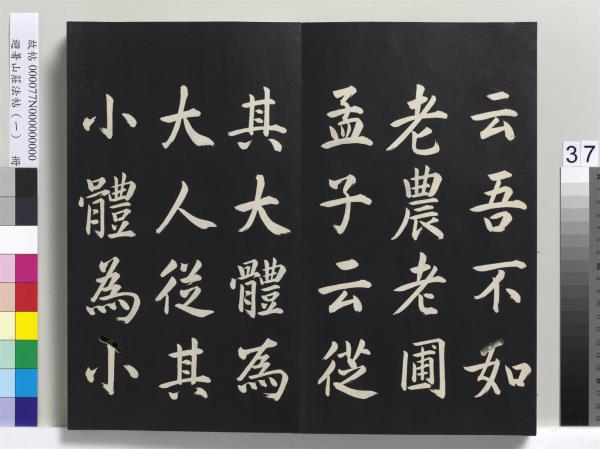 云吾不如
老農老圃
孟子云從
其大體為
大人從其
小體為小
故帖 000077N000000000
避暑山莊法帖（一） 冊
37